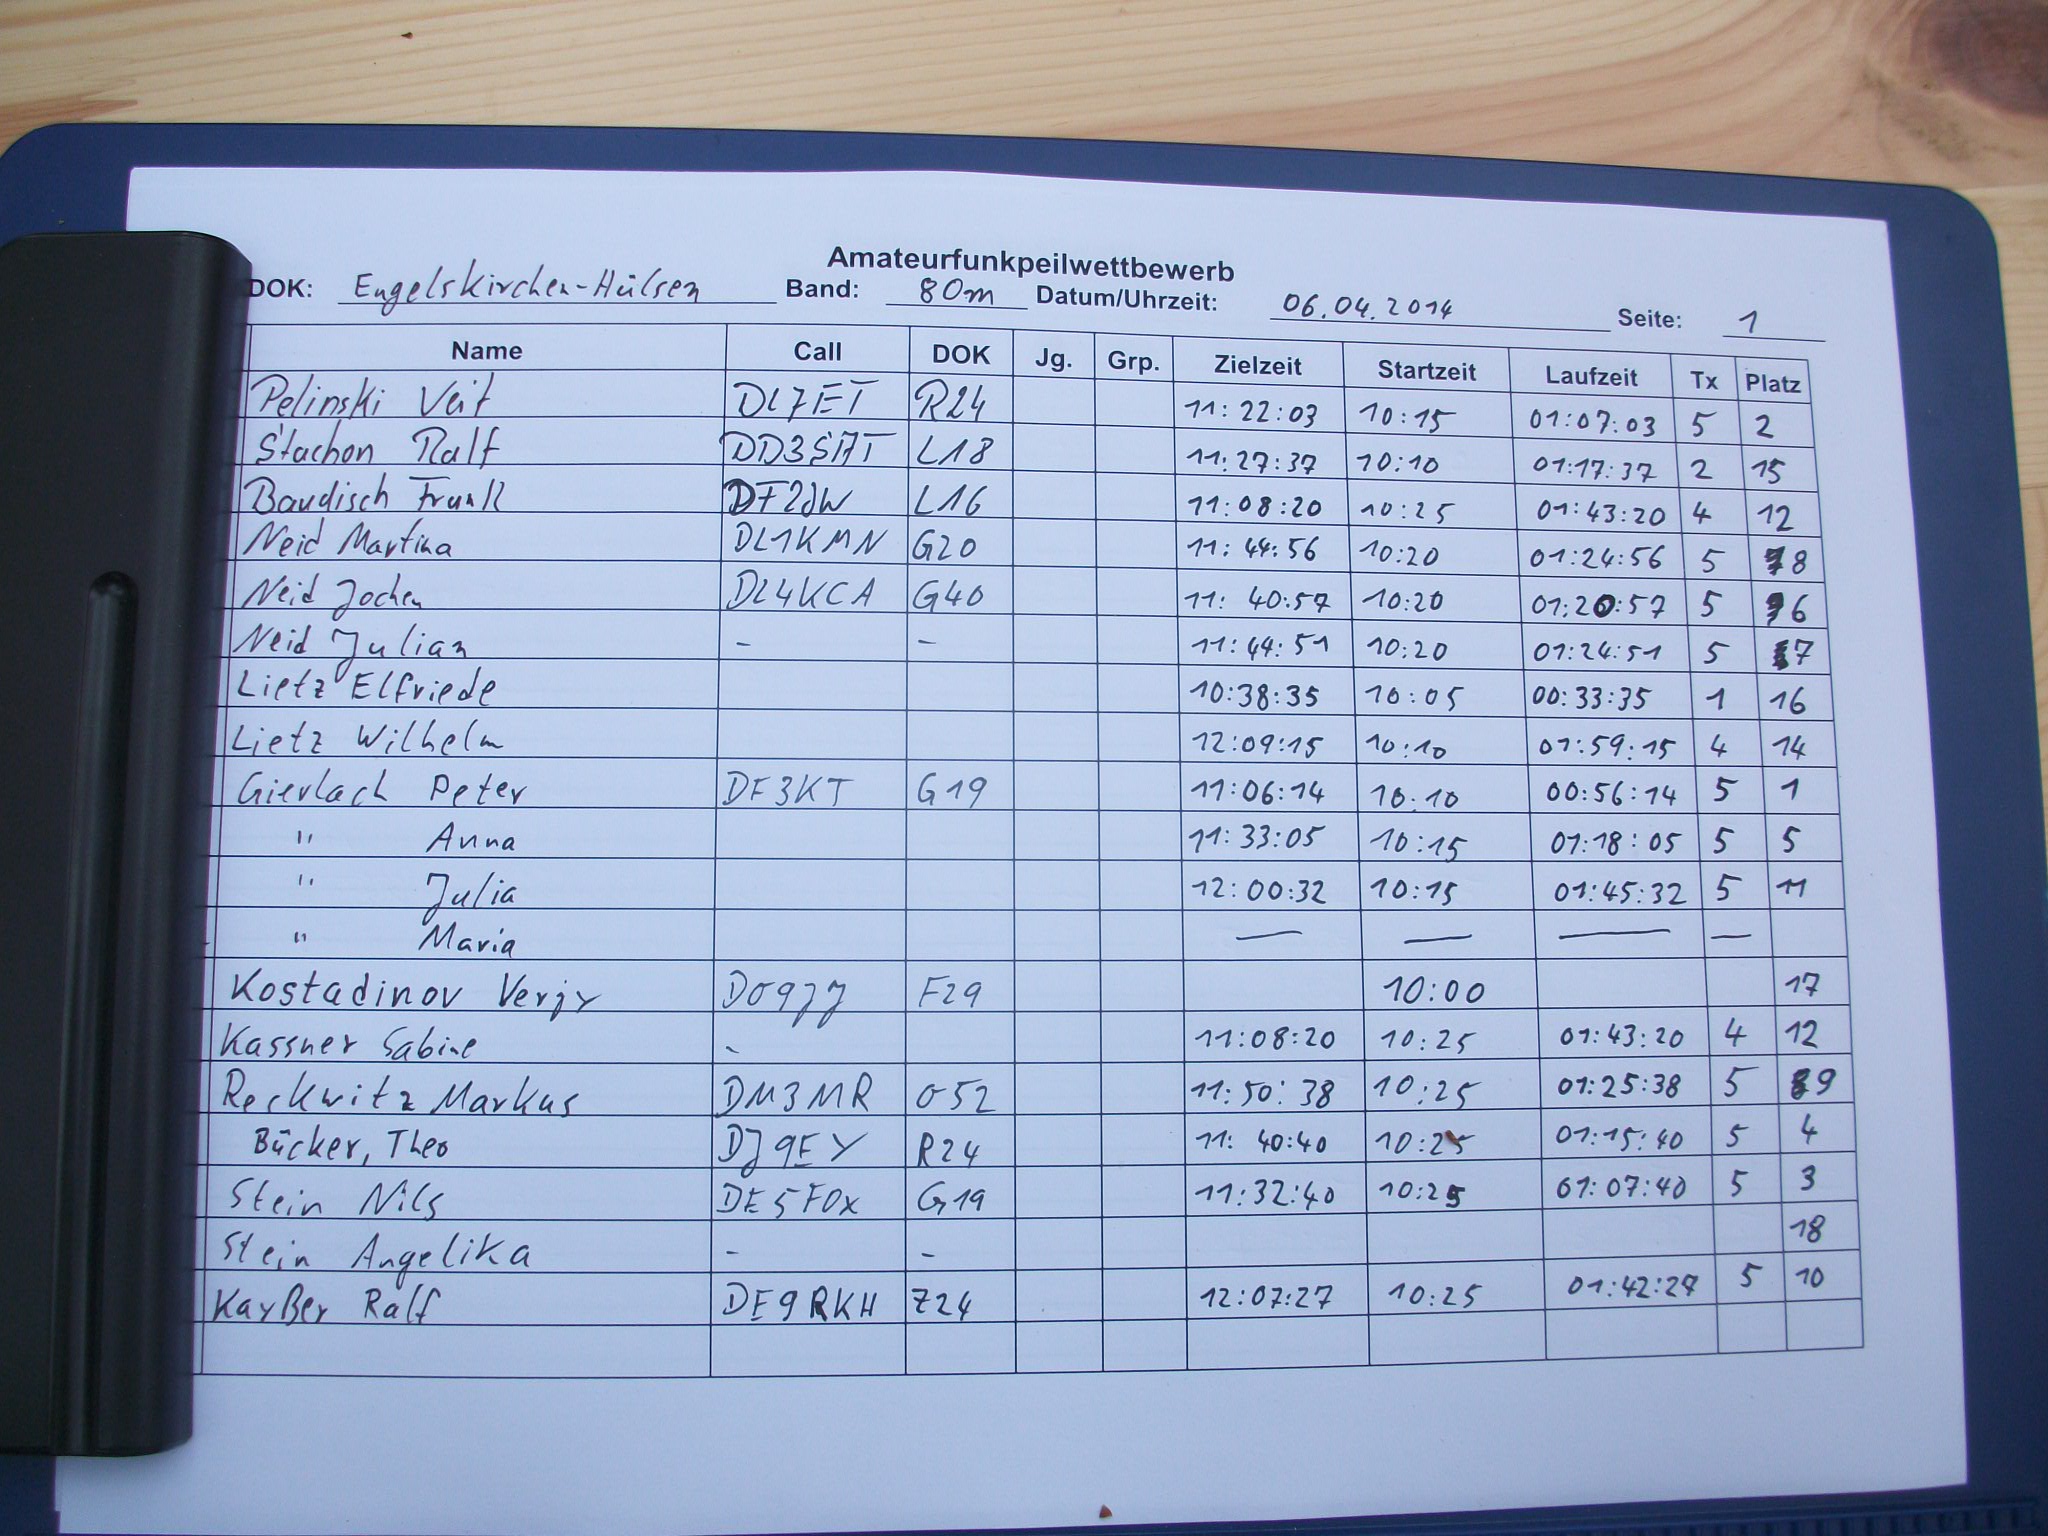 Amateurfunkpeilwettbewerb
DOK: Engelskirchen-Hülsen Band: 80m Datum/Uhrzeit: 06.04.2014 Seite: 1
Name Call DOK Jg. Grp. Zielzeit Startzeit Laufzeit Tx Platz
Pelinski Veit DL7ET R24 11:22:03 10:15 01:07:03 5 2
Stachon Ralf DD3SAT L18 11:27:37 10:10 01:17:37 2 15
Baudisch Frank DF2JW L16 11:08:20 10:25 01:43:20 4 12
Neid Martina DL1KMN G20 11:44:56 10:20 01:24:56 5 8
Neid Jochen DL4KCA G40 11:40:57 10:20 01:20:57 5 6
Neid Julian – – 11:44:51 10:20 01:24:51 5 7
Lietz Elfriede 10:38:35 10:05 00:33:35 1 16
Lietz Wilhelm 12:09:15 10:10 01:59:15 4 14
Gierlach Peter DF3KT G19 11:06:14 10:10 00:56:14 5 1
" Anna 11:33:05 10:15 01:18:05 5 5
" Julia 12:00:32 10:15 01:45:32 5 11
" Maria — — — —
Kostadinov DO9JJ F29 10:00 17
Kassner Sabine - 11:08:20 10:25 01:43:20 4 12
Reckwitz Markus DM3MR O52 11:50:38 10:25 01:25:38 5 9
Bücker, Theo DJ9EY R24 11:40:40 10:25 01:15:40 5 4
Stein Nils DE5FOX G19 11:32:40 10:25 01:07:40 5 3
Stein Angelika - - 18
Kayßer Ralf DE9RKH Z24 12:07:27 10:25 01:42:27 5 10